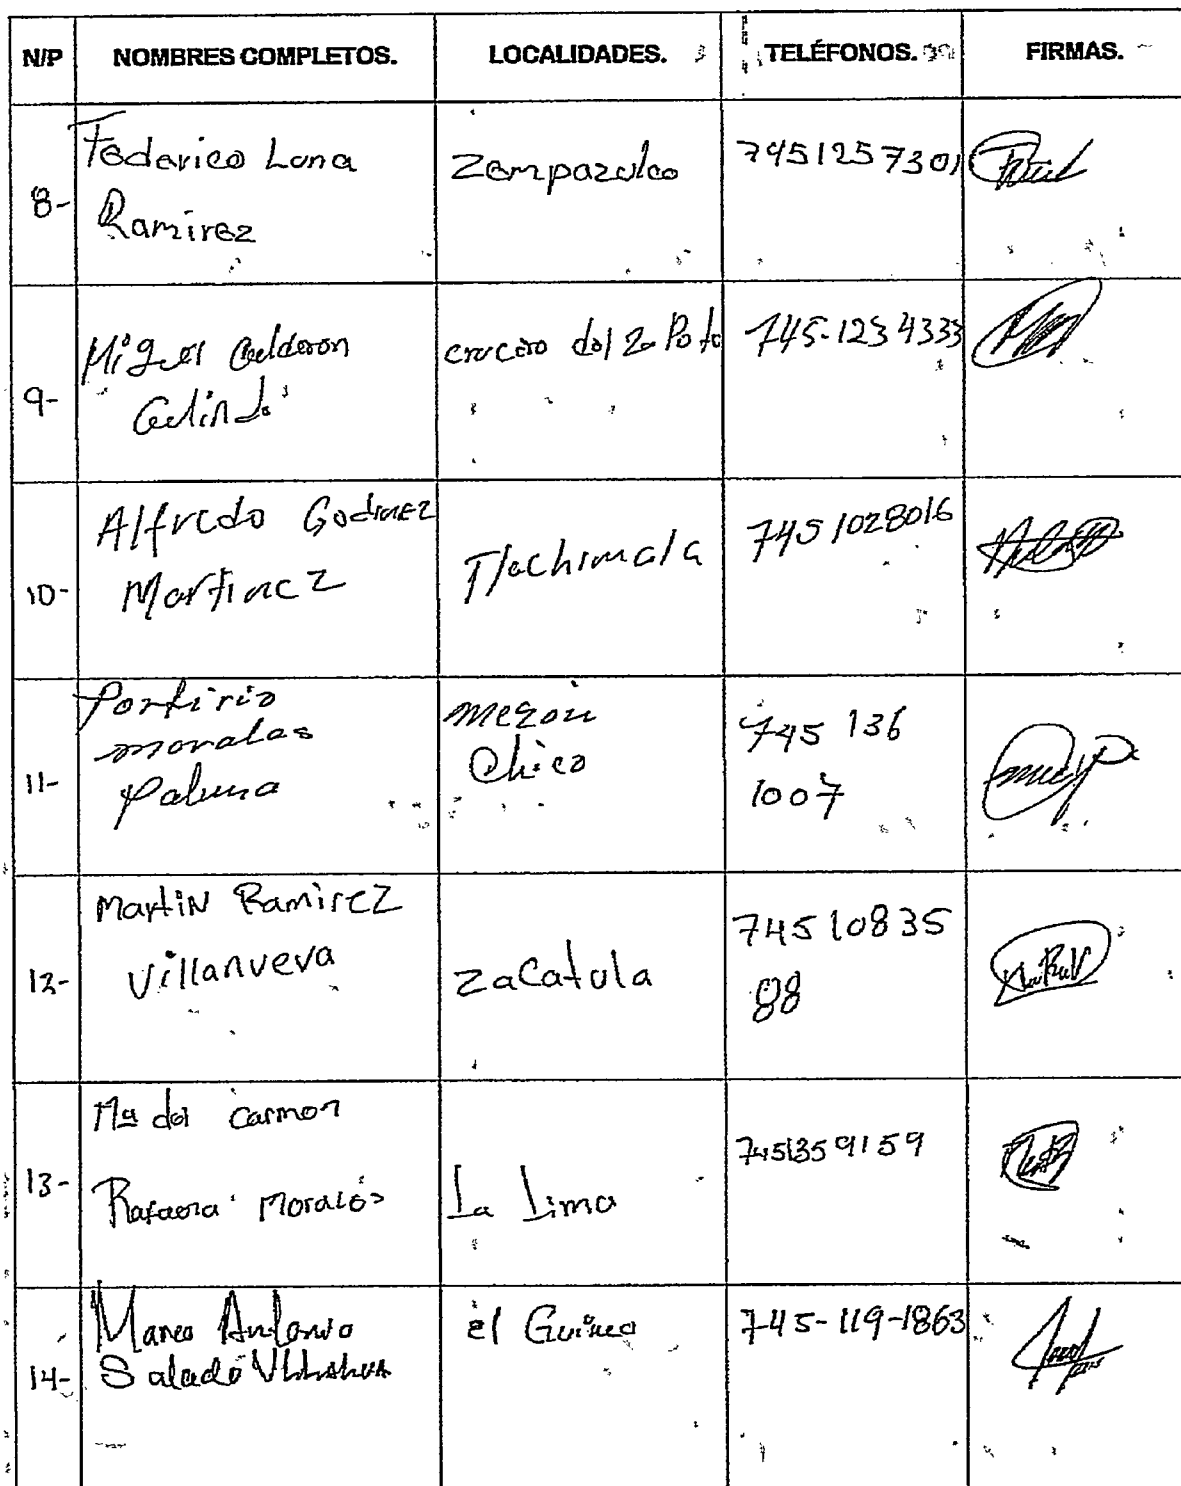 N/P NOMBRES COMPLETOS. LOCALIDADES. TELÉFONOS. FIRMAS.
8- Federico Luna Ramirez Zempazulco 7451257301
9- Miguel Calderon Galindo crucero del Zapote 745-1234333
10- Alfredo Godinez Martinez Tlachimala 7451028016
11- Porfirio morales Paluna mezon Chico 745 136 1007
12- Martin Ramirez Villanueva Zacatula 7451083588
13- Ma del Carmen Rafaela Morales La Lima 7451359159
14- Marco Antonio Salado el Guineo 745-119-1863